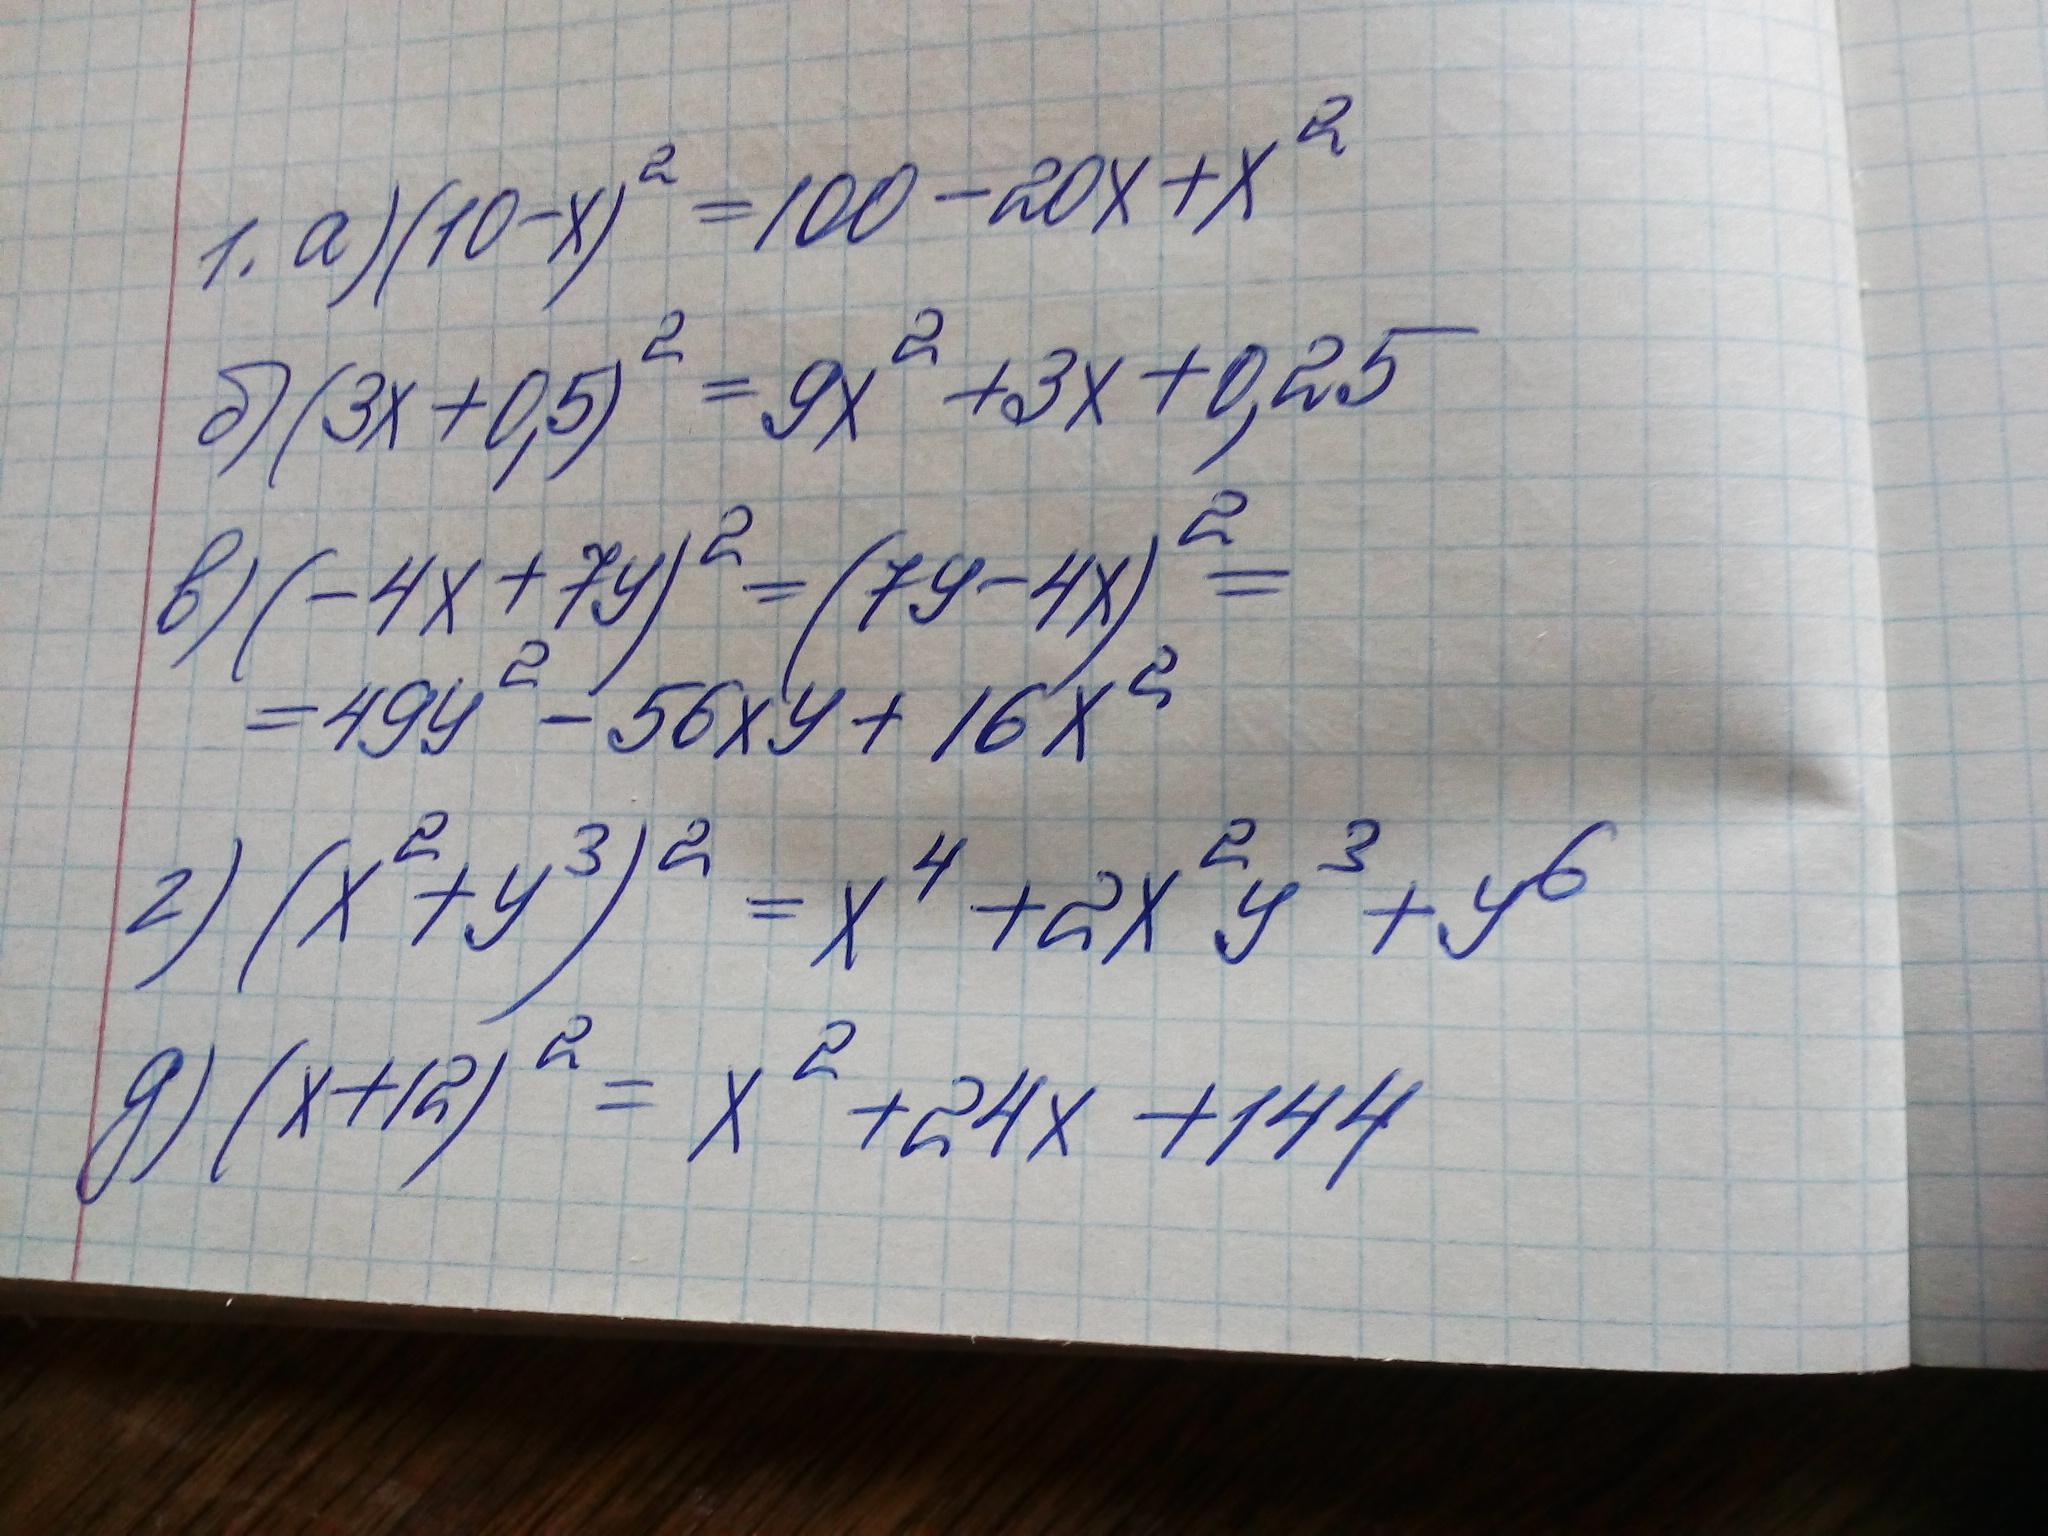 1. а) (10-x)² = 100 - 20x + x²
б) (3x + 0,5)² = 9x² + 3x + 0,25
в) (-4x + 7y)² = (7y - 4x)² =
= 49y² - 56xy + 16x²
г) (x² + y³)² = x⁴ + 2x²y³ + y⁶
д) (x + 12)² = x² + 24x + 144